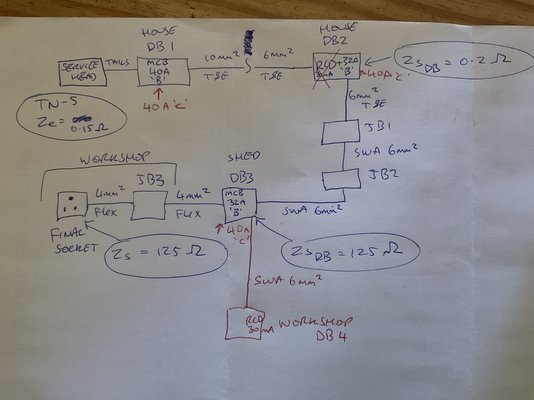 HOUSE
DB1
SERVICE
HEAD
TAILS
MCB
40A
'B'
10mm²
T&E
6mm²
T&E
HOUSE
DB2
RCD
+32A
'B'
40A'C'
ZsDB = 0.2 Ω
40A'C'
TN-S
Ze = 0.15Ω
6mm²
T&E
JB1
SWA 6mm²
JB2
WORKSHOP
JB3
SHED
DB3
4mm²
FLEX
4mm²
FLEX
MCB
32A
'B'
SWA 6mm²
FINAL
SOCKET
40A
'C'
Zs = 125 Ω
ZsDB = 125 Ω
SWA 6mm²
RCD
30mA
WORKSHOP
DB4